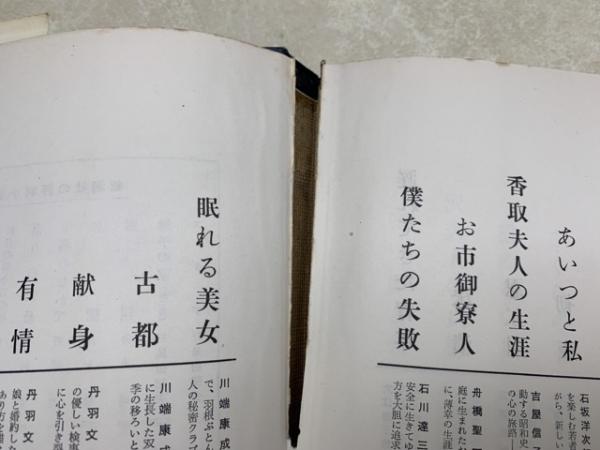 あいつと私
香取夫人の生涯
お市御寮人
僕たちの失敗
石坂洋次
を楽しむ若者
がら、新しい
吉屋信子
動する昭和史
の心の旅路―
舟橋聖一
庭に生まれたが
に、薄幸の生涯
石川達三
安全に生きてゆ
方を大胆に追求
眠れる美女
古都
献身
有情
川端康成
で、羽根ぶとん
人の秘密クラブ
川端康成
に生長した双
季の移ろいと
丹羽文
の優しい検事
に心を引き裂
丹羽文
娘と婚約した
あり方を描